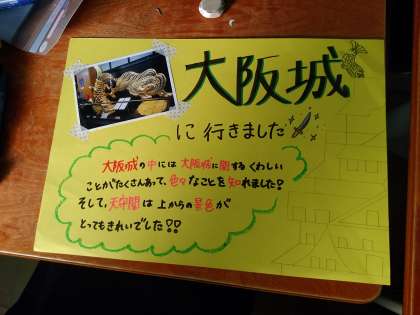 大阪城
に行きました
大阪城の中には大阪城に関するくわしい
ことがたくさんあって、色々なことを知れました?
そして、天守閣は上からの景色が
とってもきれいでした!!